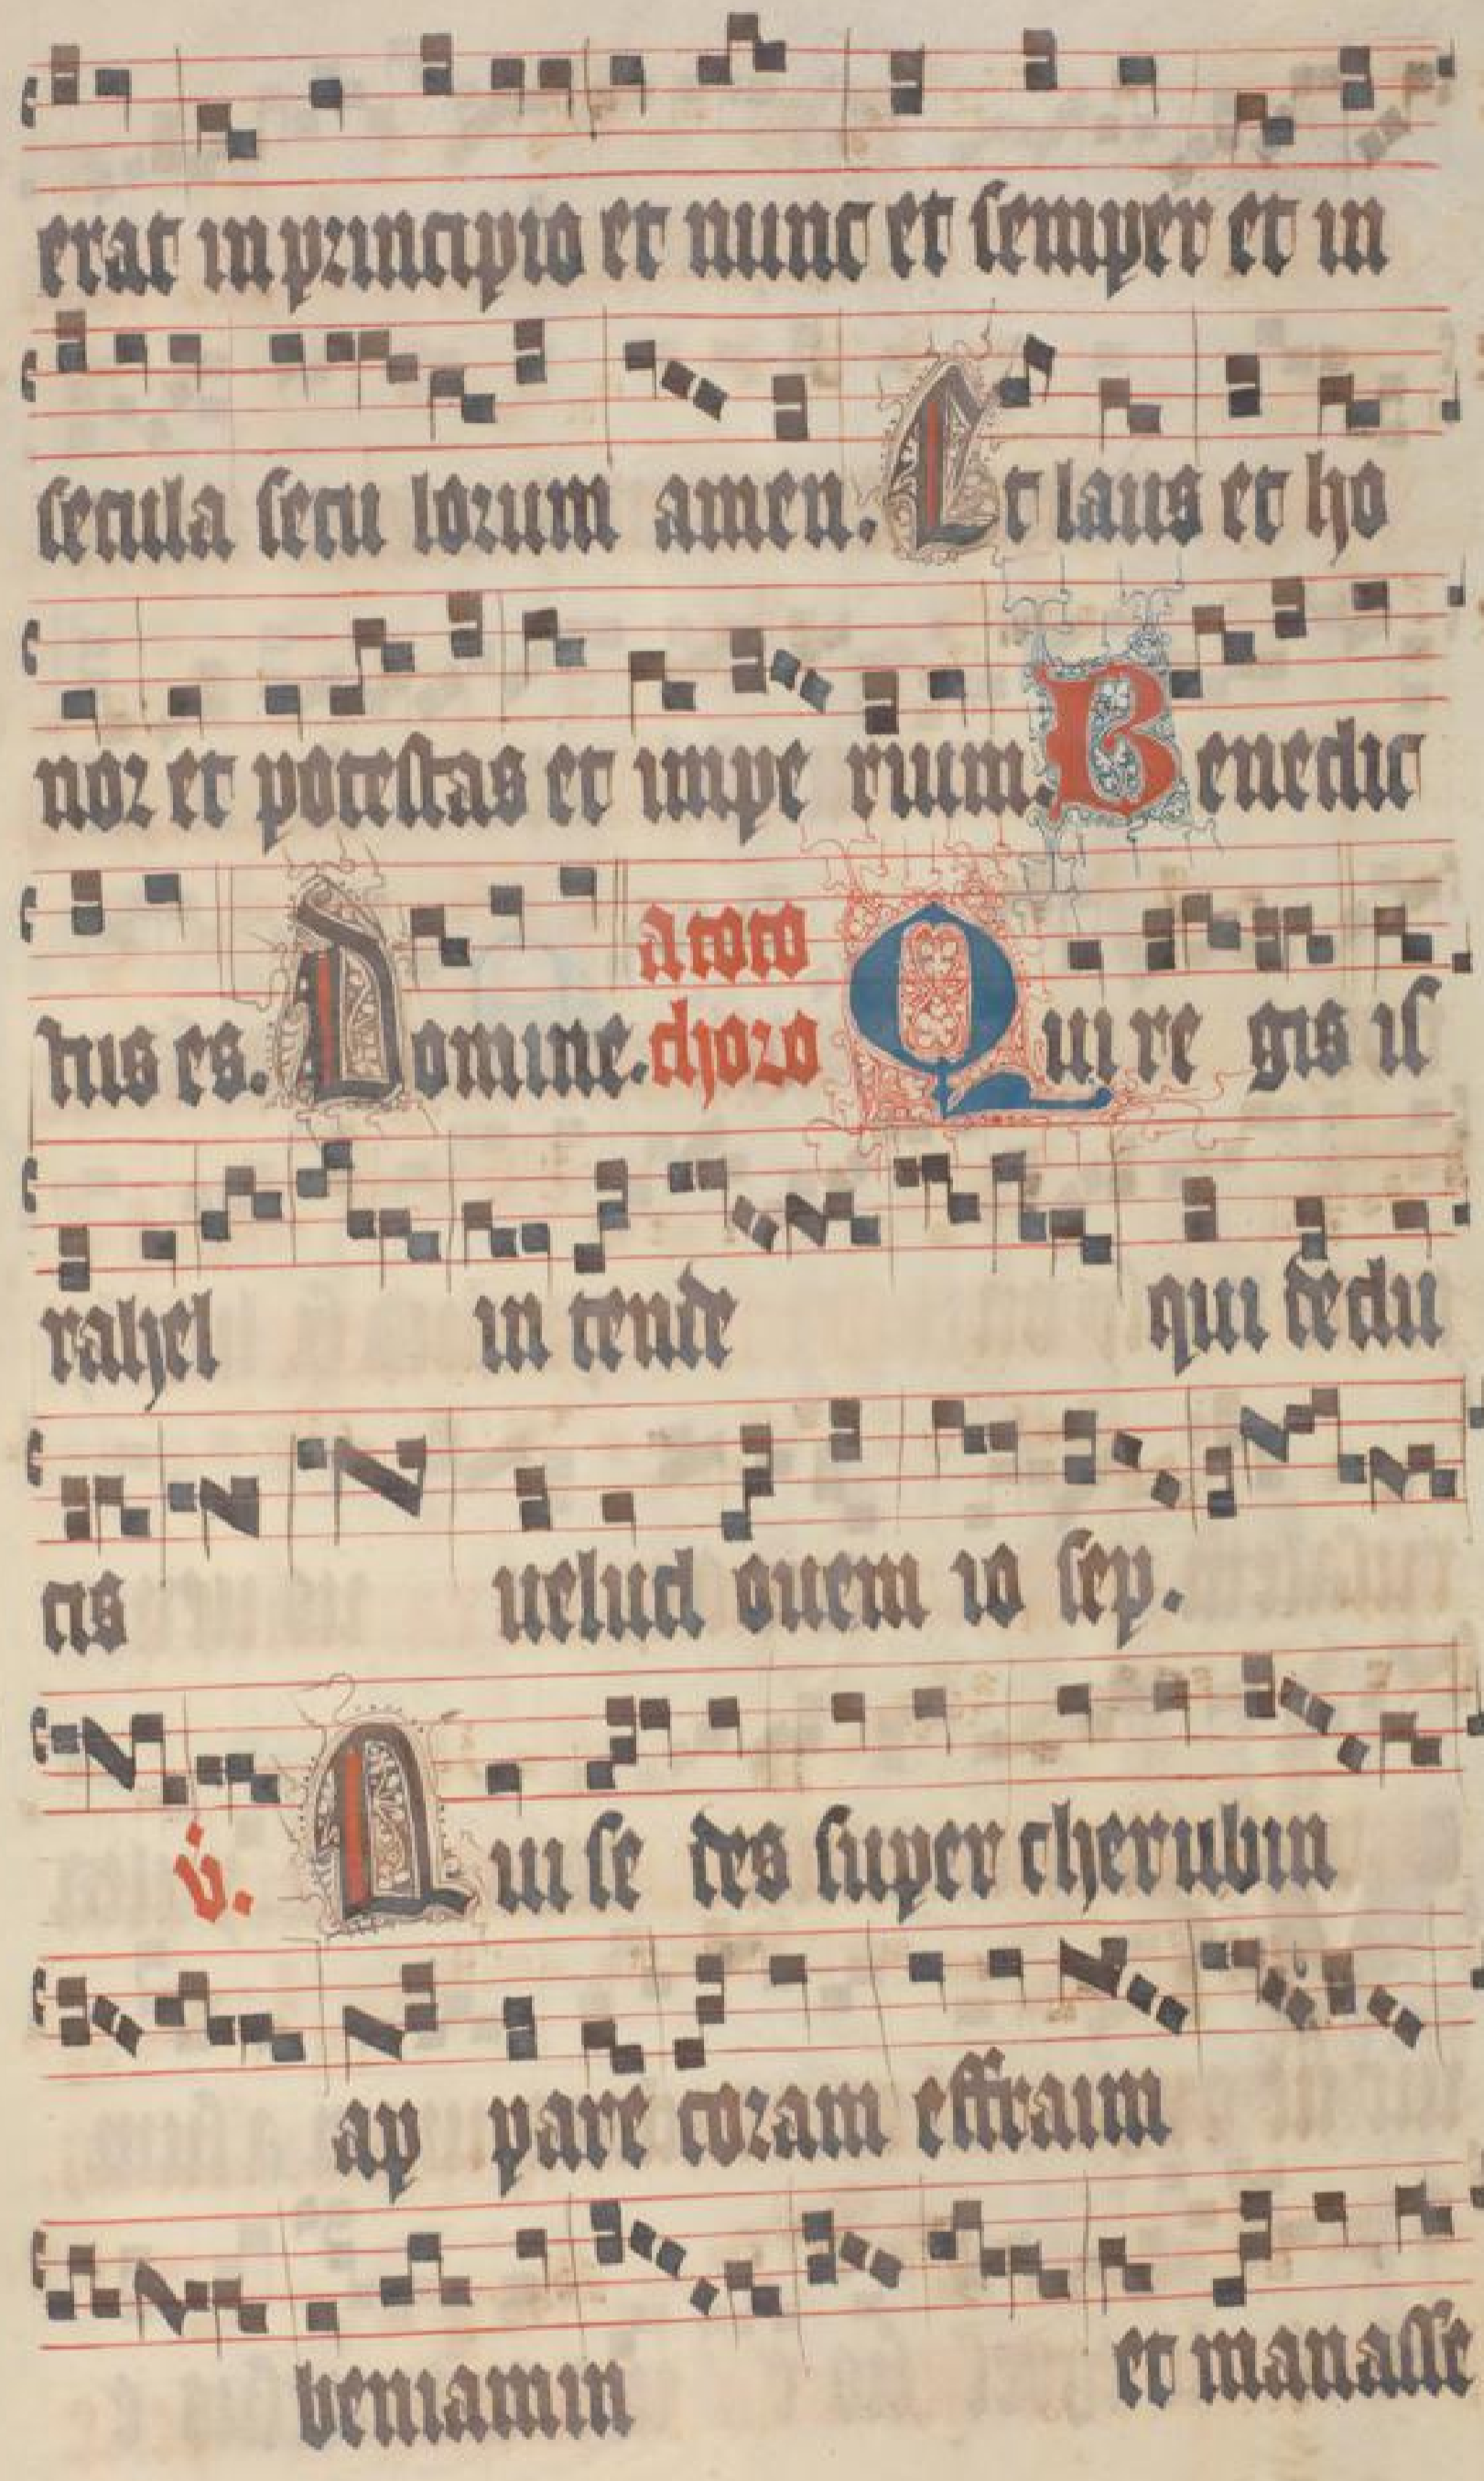 erat in principio et nunc et semper et in
secula secu lorum amen. Et laus et ho
nor et potestas et impe rium. Benedic
tus es. Domine. a toto
choro Qui re gis is
rahel in tende qui dedu
cis velud ovem io sep.
v. Qui se des super cherubin
ap pare coram effraim
beniamin et manasse